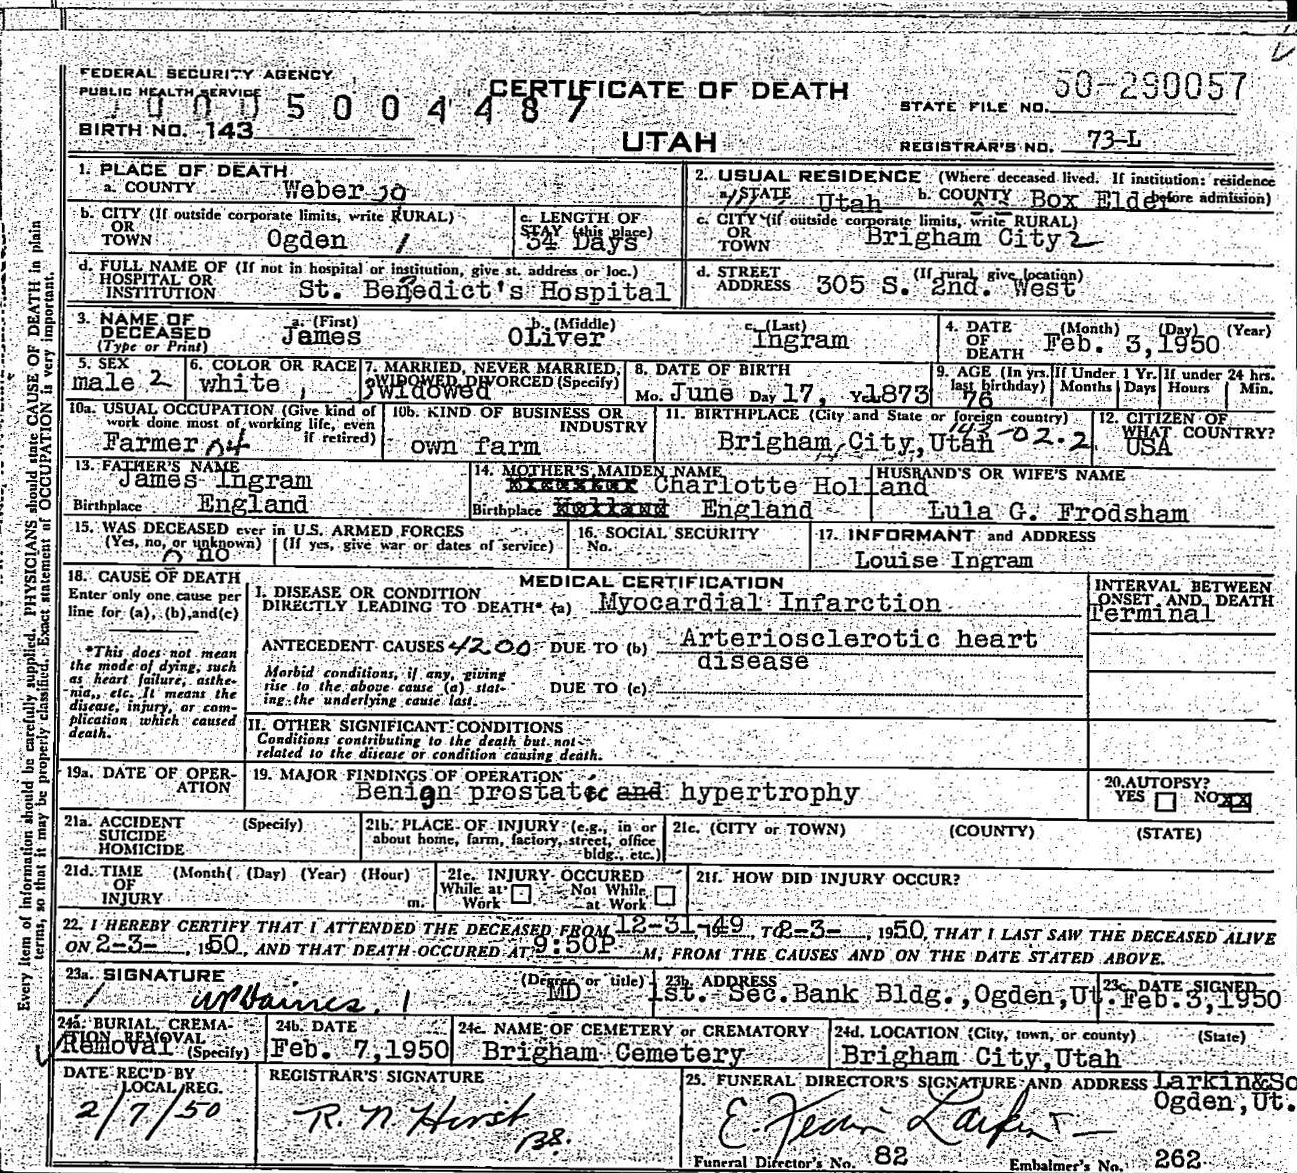 FEDERAL SECURITY AGENCY
PUBLIC HEALTH SERVICE
CERTIFICATE OF DEATH
50-290057
STATE FILE NO.
5004487
BIRTH NO. 143
UTAH
REGISTRAR'S NO. 73-L
1. PLACE OF DEATH
a. COUNTY Weber
2. USUAL RESIDENCE (Where deceased lived. If institution: residence before admission)
a. STATE Utah b. COUNTY Box Elder
b. CITY (If outside corporate limits, write RURAL)
OR
TOWN Ogden 1
c. LENGTH OF
STAY (this place)
34 Days
c. CITY (if outside corporate limits, write RURAL)
OR
TOWN Brigham City 2
d. FULL NAME OF (If not in hospital or institution, give st. address or loc.)
HOSPITAL OR
INSTITUTION St. Benedict's Hospital
d. STREET (If rural, give location)
ADDRESS 305 S. 2nd. West
3. NAME OF
DECEASED
(Type or Print)
a. (First) b. (Middle) c. (Last)
James OLiver Ingram
4. DATE
OF
DEATH
(Month) (Day) (Year)
Feb. 3,1950
5. SEX
male 2
6. COLOR OR RACE
white
7. MARRIED, NEVER MARRIED,
WIDOWED, DIVORCED (Specify)
Widowed
8. DATE OF BIRTH
Mo. June Day 17, Yr. 1873
9. AGE (In yrs. last birthday) If Under 1 Yr. Months Days If under 24 hrs. Hours Min.
76
10a. USUAL OCCUPATION (Give kind of
work done most of working life, even
if retired)
Farmer 04
10b. KIND OF BUSINESS OR
INDUSTRY
own farm
11. BIRTHPLACE (City and State or foreign country)
143-02.2
Brigham City,Utah
12. CITIZEN OF
WHAT COUNTRY?
USA
13. FATHER'S NAME
James Ingram
Birthplace England
14. MOTHER'S MAIDEN NAME
Charlotte Holland
Birthplace Holland England
HUSBAND'S OR WIFE'S NAME
Lula G. Frodsham
15. WAS DECEASED ever in U.S. ARMED FORCES
(Yes, no, or unknown) (If yes, give war or dates of service)
no
16. SOCIAL SECURITY
No.
17. INFORMANT and ADDRESS
Louise Ingram
18. CAUSE OF DEATH
Enter only one cause per
line for (a), (b), and (c)
*This does not mean
the mode of dying, such
as heart failure, asthe-
nia, etc. It means the
disease, injury, or com-
plication which caused
death.
MEDICAL CERTIFICATION
I. DISEASE OR CONDITION
DIRECTLY LEADING TO DEATH* (a) Myocardial Infarction
ANTECEDENT CAUSES 4200 DUE TO (b) Arteriosclerotic heart
disease
Morbid conditions, if any, giving
rise to the above cause (a) stat-
ing the underlying cause last.
DUE TO (c)
INTERVAL BETWEEN
ONSET AND DEATH
Terminal
II. OTHER SIGNIFICANT CONDITIONS
Conditions contributing to the death but not
related to the disease or condition causing death.
19a. DATE OF OPER-
ATION
19. MAJOR FINDINGS OF OPERATION
Benign prostatic and hypertrophy
20. AUTOPSY?
YES NO XX
21a. ACCIDENT (Specify)
SUICIDE
HOMICIDE
21b. PLACE OF INJURY (e.g., in or
about home, farm, factory, street, office
bldg., etc.)
21c. (CITY or TOWN) (COUNTY) (STATE)
21d. TIME (Month) (Day) (Year) (Hour)
OF
INJURY m.
21e. INJURY OCCURED
While at Work Not While at Work
21f. HOW DID INJURY OCCUR?
22. I HEREBY CERTIFY THAT I ATTENDED THE DECEASED FROM 12-31-49 TO 2-3-, 1950, THAT I LAST SAW THE DECEASED ALIVE
ON 2-3-, 1950, AND THAT DEATH OCCURED AT 9:50P M, FROM THE CAUSES AND ON THE DATE STATED ABOVE.
23a. SIGNATURE (Degree or title)
W P Daines. MD
23b. ADDRESS
1st. Sec.Bank Bldg.,Ogden,Ut.
23c. DATE SIGNED
Feb.3,1950
24a. BURIAL, CREMA-
TION, REMOVAL (Specify)
Removal
24b. DATE
Feb. 7,1950
24c. NAME OF CEMETERY or CREMATORY
Brigham Cemetery
24d. LOCATION (City, town, or county) (State)
Brigham City,Utah
DATE REC'D BY
LOCAL REG.
2/7/50
REGISTRAR'S SIGNATURE
R. N. Hirst
25. FUNERAL DIRECTOR'S SIGNATURE AND ADDRESS Larkin&So
Ogden,Ut.
Larkin
Funeral Director's No. 82 Embalmer's No. 262
Every item of information should be carefully supplied. PHYSICIANS should state CAUSE OF DEATH in plain
terms, so that it may be properly classified. Exact statement of OCCUPATION is very important.